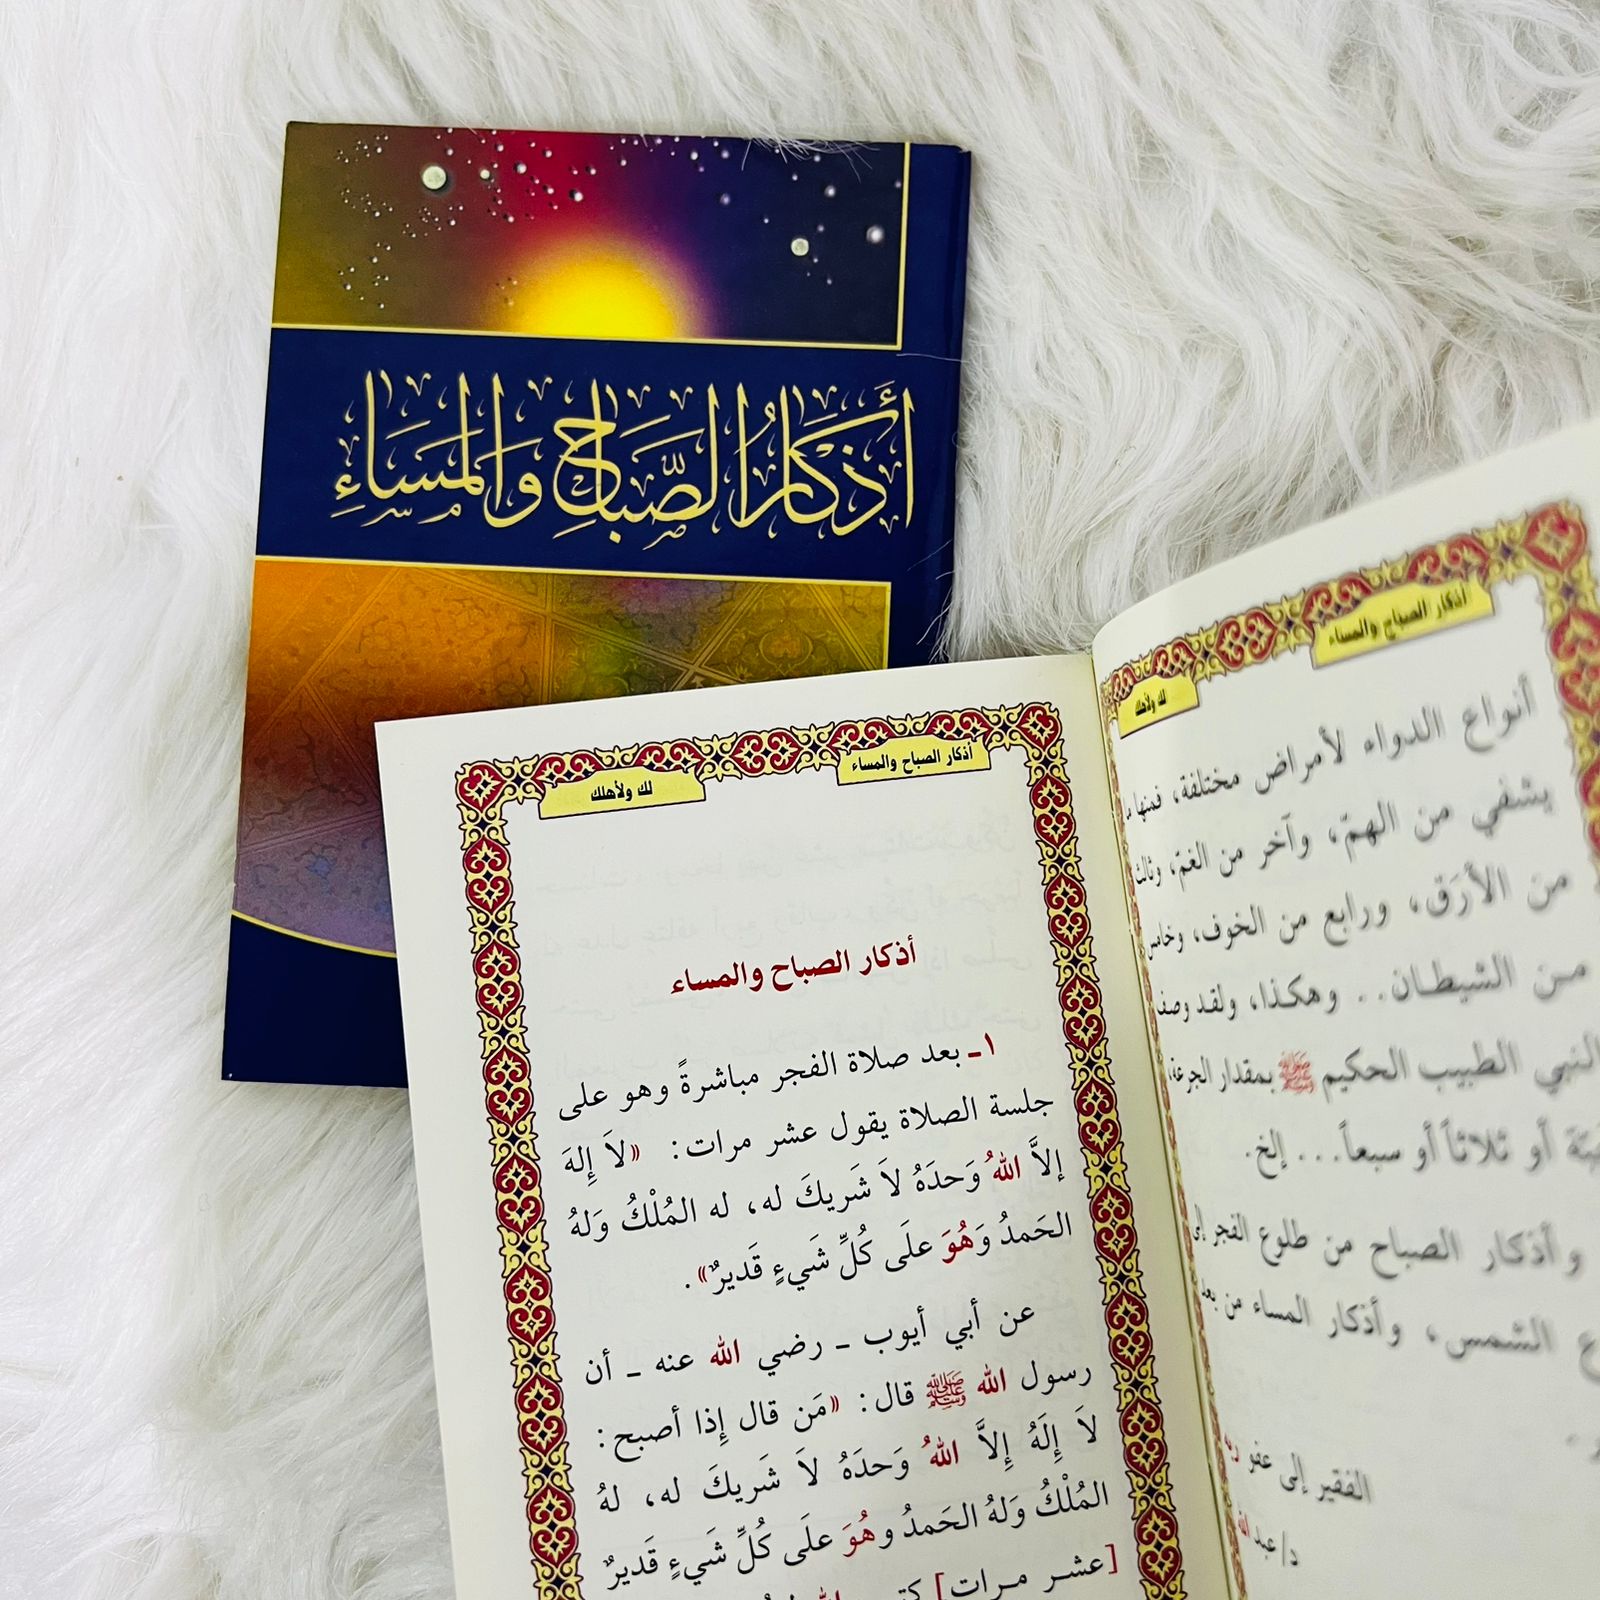 أَذْكَارُ الصَّبَاحِ وَالمَسَاءِ
أذكار الصباح والمساء
لك ولأهلك
أنواع الدواء لأمراض مختلفة، فمنها
يشفي من الهمّ، وآخر من الغمّ، وثالث
من الأرَق، ورابع من الخوف، وخامس
من الشيطان.. وهكذا، ولقد وصف
النبي الطبيب الحكيم ﷺ بمقدار الجرعة،
أو ثلاثاً أو سبعاً... إلخ.
وأذكار الصباح من طلوع الفجر إلى
الشمس، وأذكار المساء من بعد
الفقير إلى عفو ربه
د/عبد الله
أذكار الصباح والمساء
لك ولأهلك
أذكار الصباح والمساء
١ـ بعد صلاة الفجر مباشرةً وهو على
جلسة الصلاة يقول عشر مرات: «لاَ إِلهَ
إلاَّ اللهُ وَحدَهُ لاَ شَريكَ له، له المُلْكُ وَلهُ
الحَمدُ وَهُوَ علَى كُلِّ شَيءٍ قَديرٌ».
عن أبي أيوب ـ رضي الله عنه ـ أن
رسول الله ﷺ قال: «مَن قال إِذا أصبح:
لاَ إِلَهُ إِلاَّ اللهُ وَحدَهُ لاَ شَريكَ له، لهُ
المُلْكُ وَلهُ الحَمدُ وهُوَ علَى كُلِّ شَيءٍ قَديرٌ
[عشر مرات]